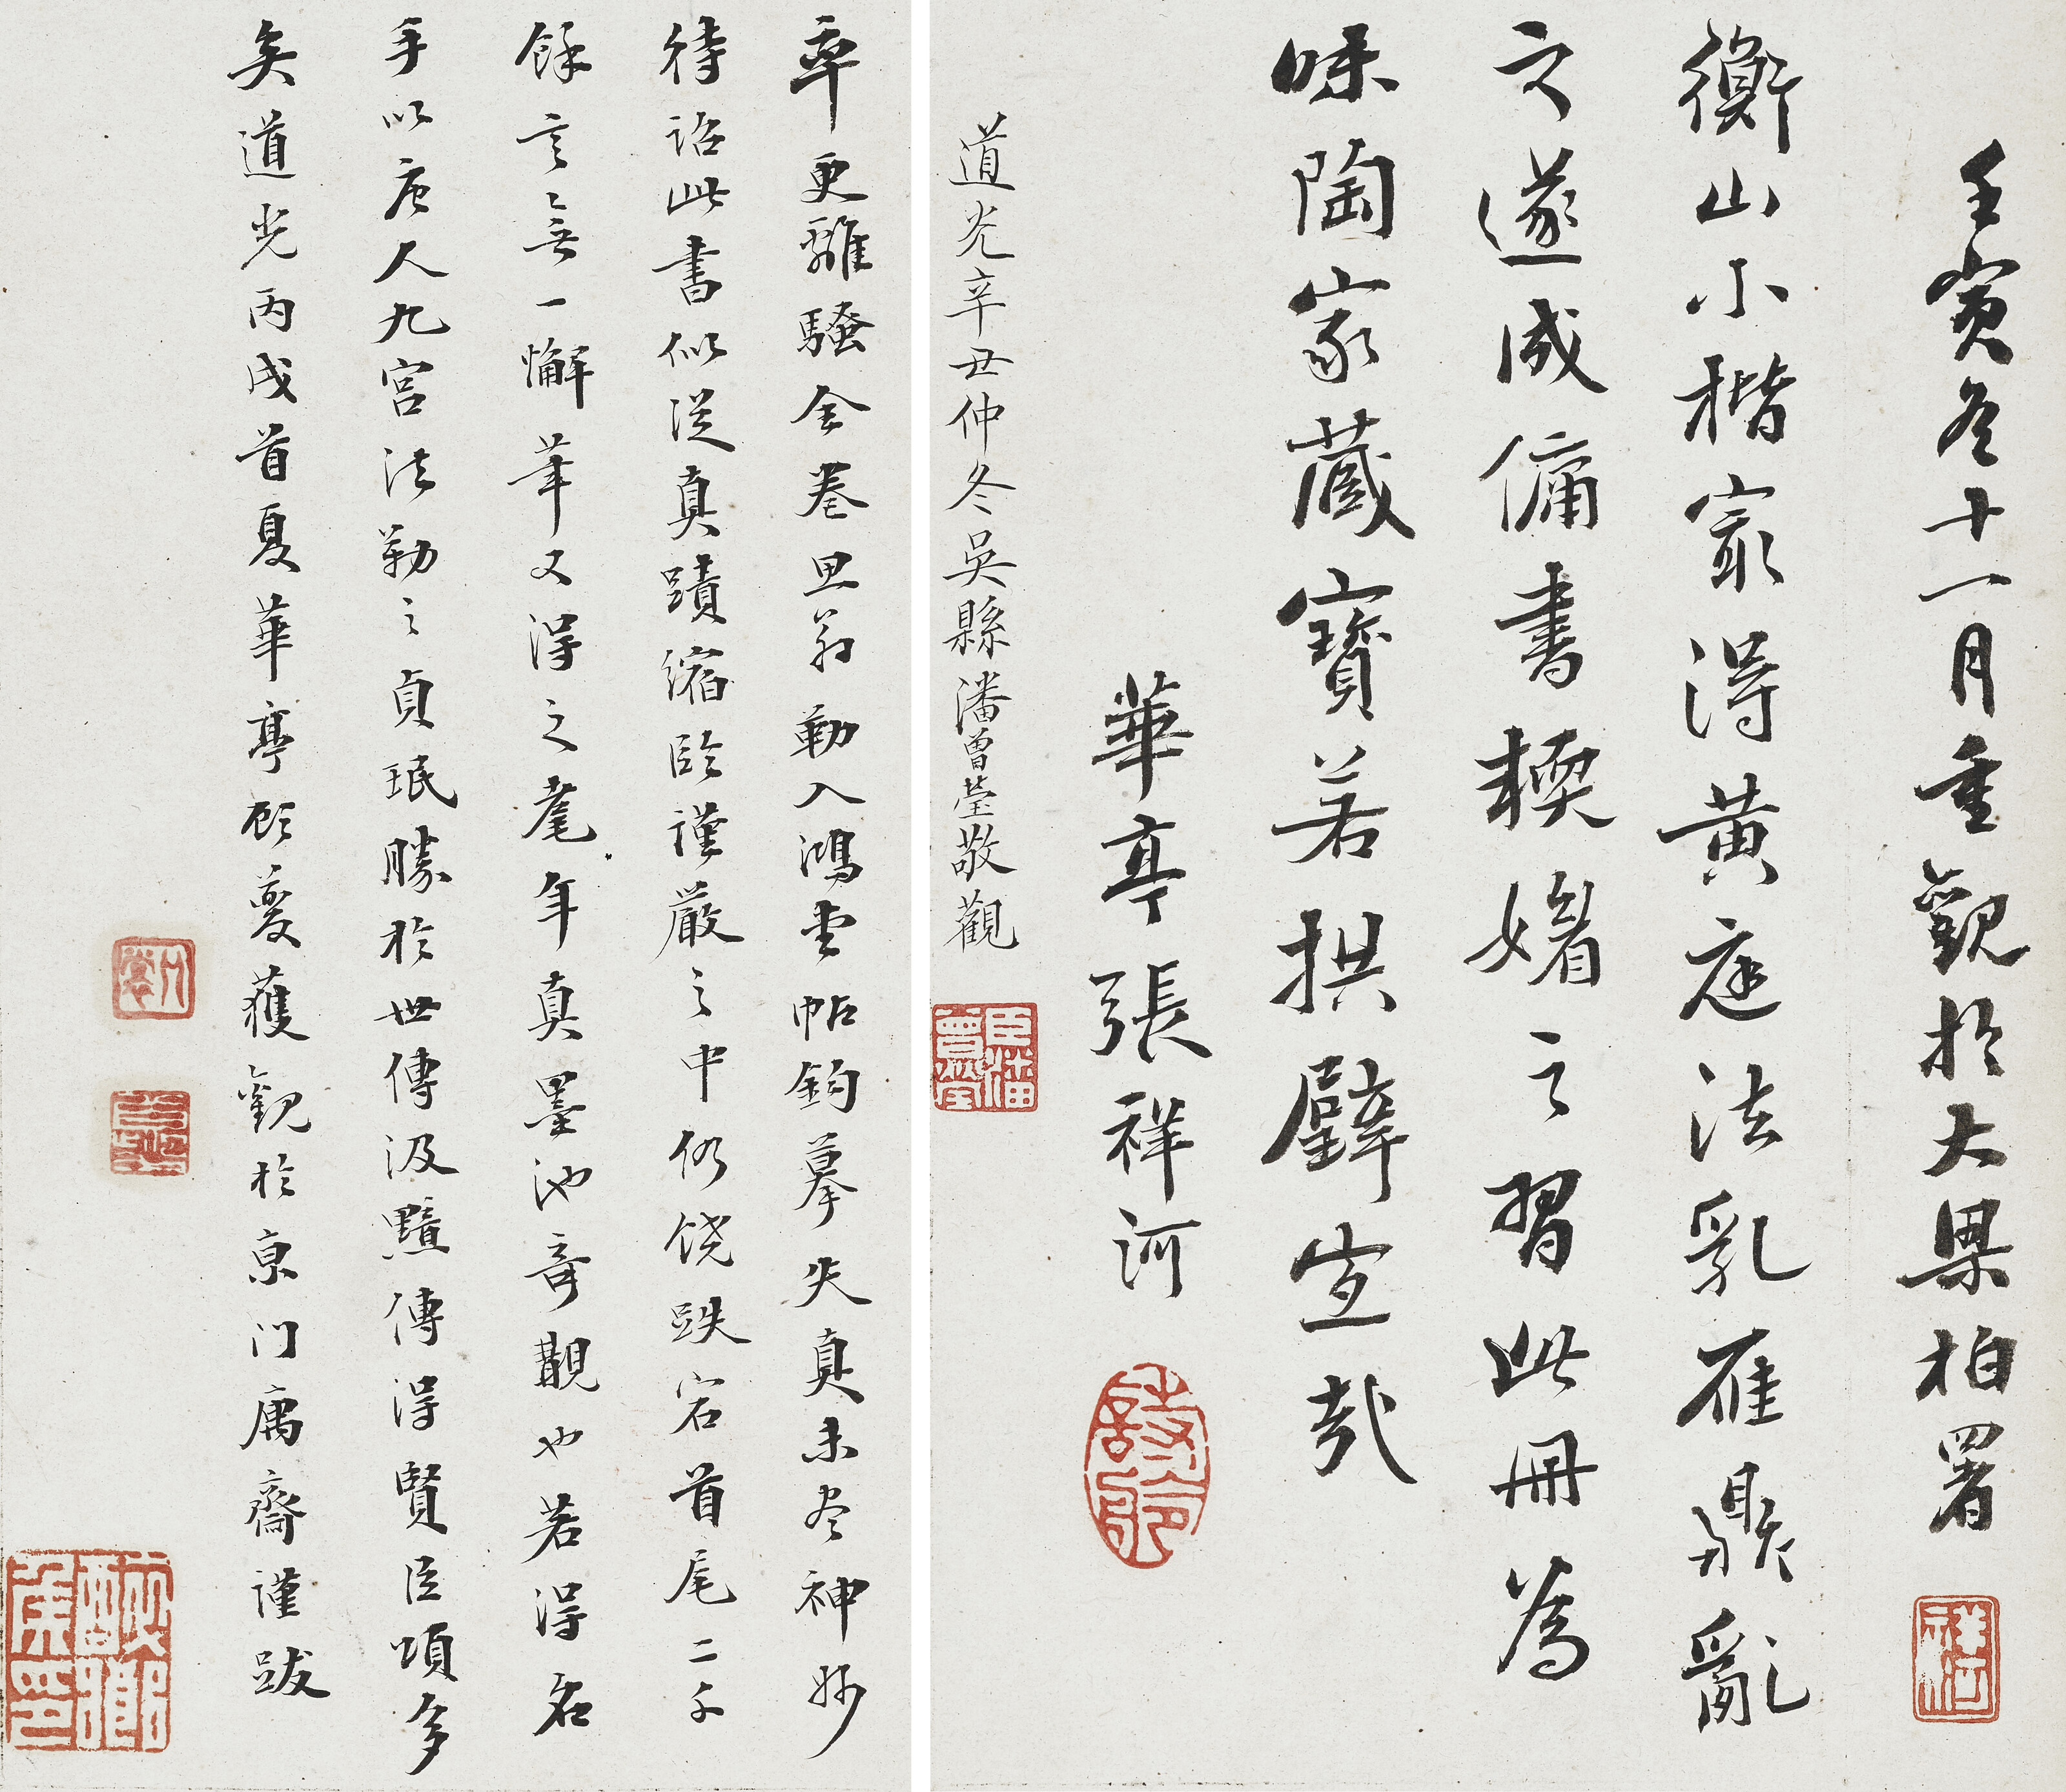 壬寅冬十一月重觀於大梁柏署
衡山小楷最得黄庭法乳雁鼎亂
之遂成傭書輭媚之習此冊為
味陶家藏寶若拱璧宜哉
華亭張祥河
道光辛丑仲冬吳縣潘曾瑩敬觀
率更離騷全卷思翁勒入鴻堂帖鉤摹失真未尽神妙
待詔此書似從真蹟縮臨謹嚴之中仍饒跌宕首尾二千
餘言無一懈筆又得之耄年真墨池奇觀也若得名
手以唐人九宮法勒之貞珉勝於世傳汲黯傳得賢臣頌多
矣道光丙戌首夏華亭顧夔獲觀於京门寓齋謹跋
祥河
詩舲
臣潘曾瑩